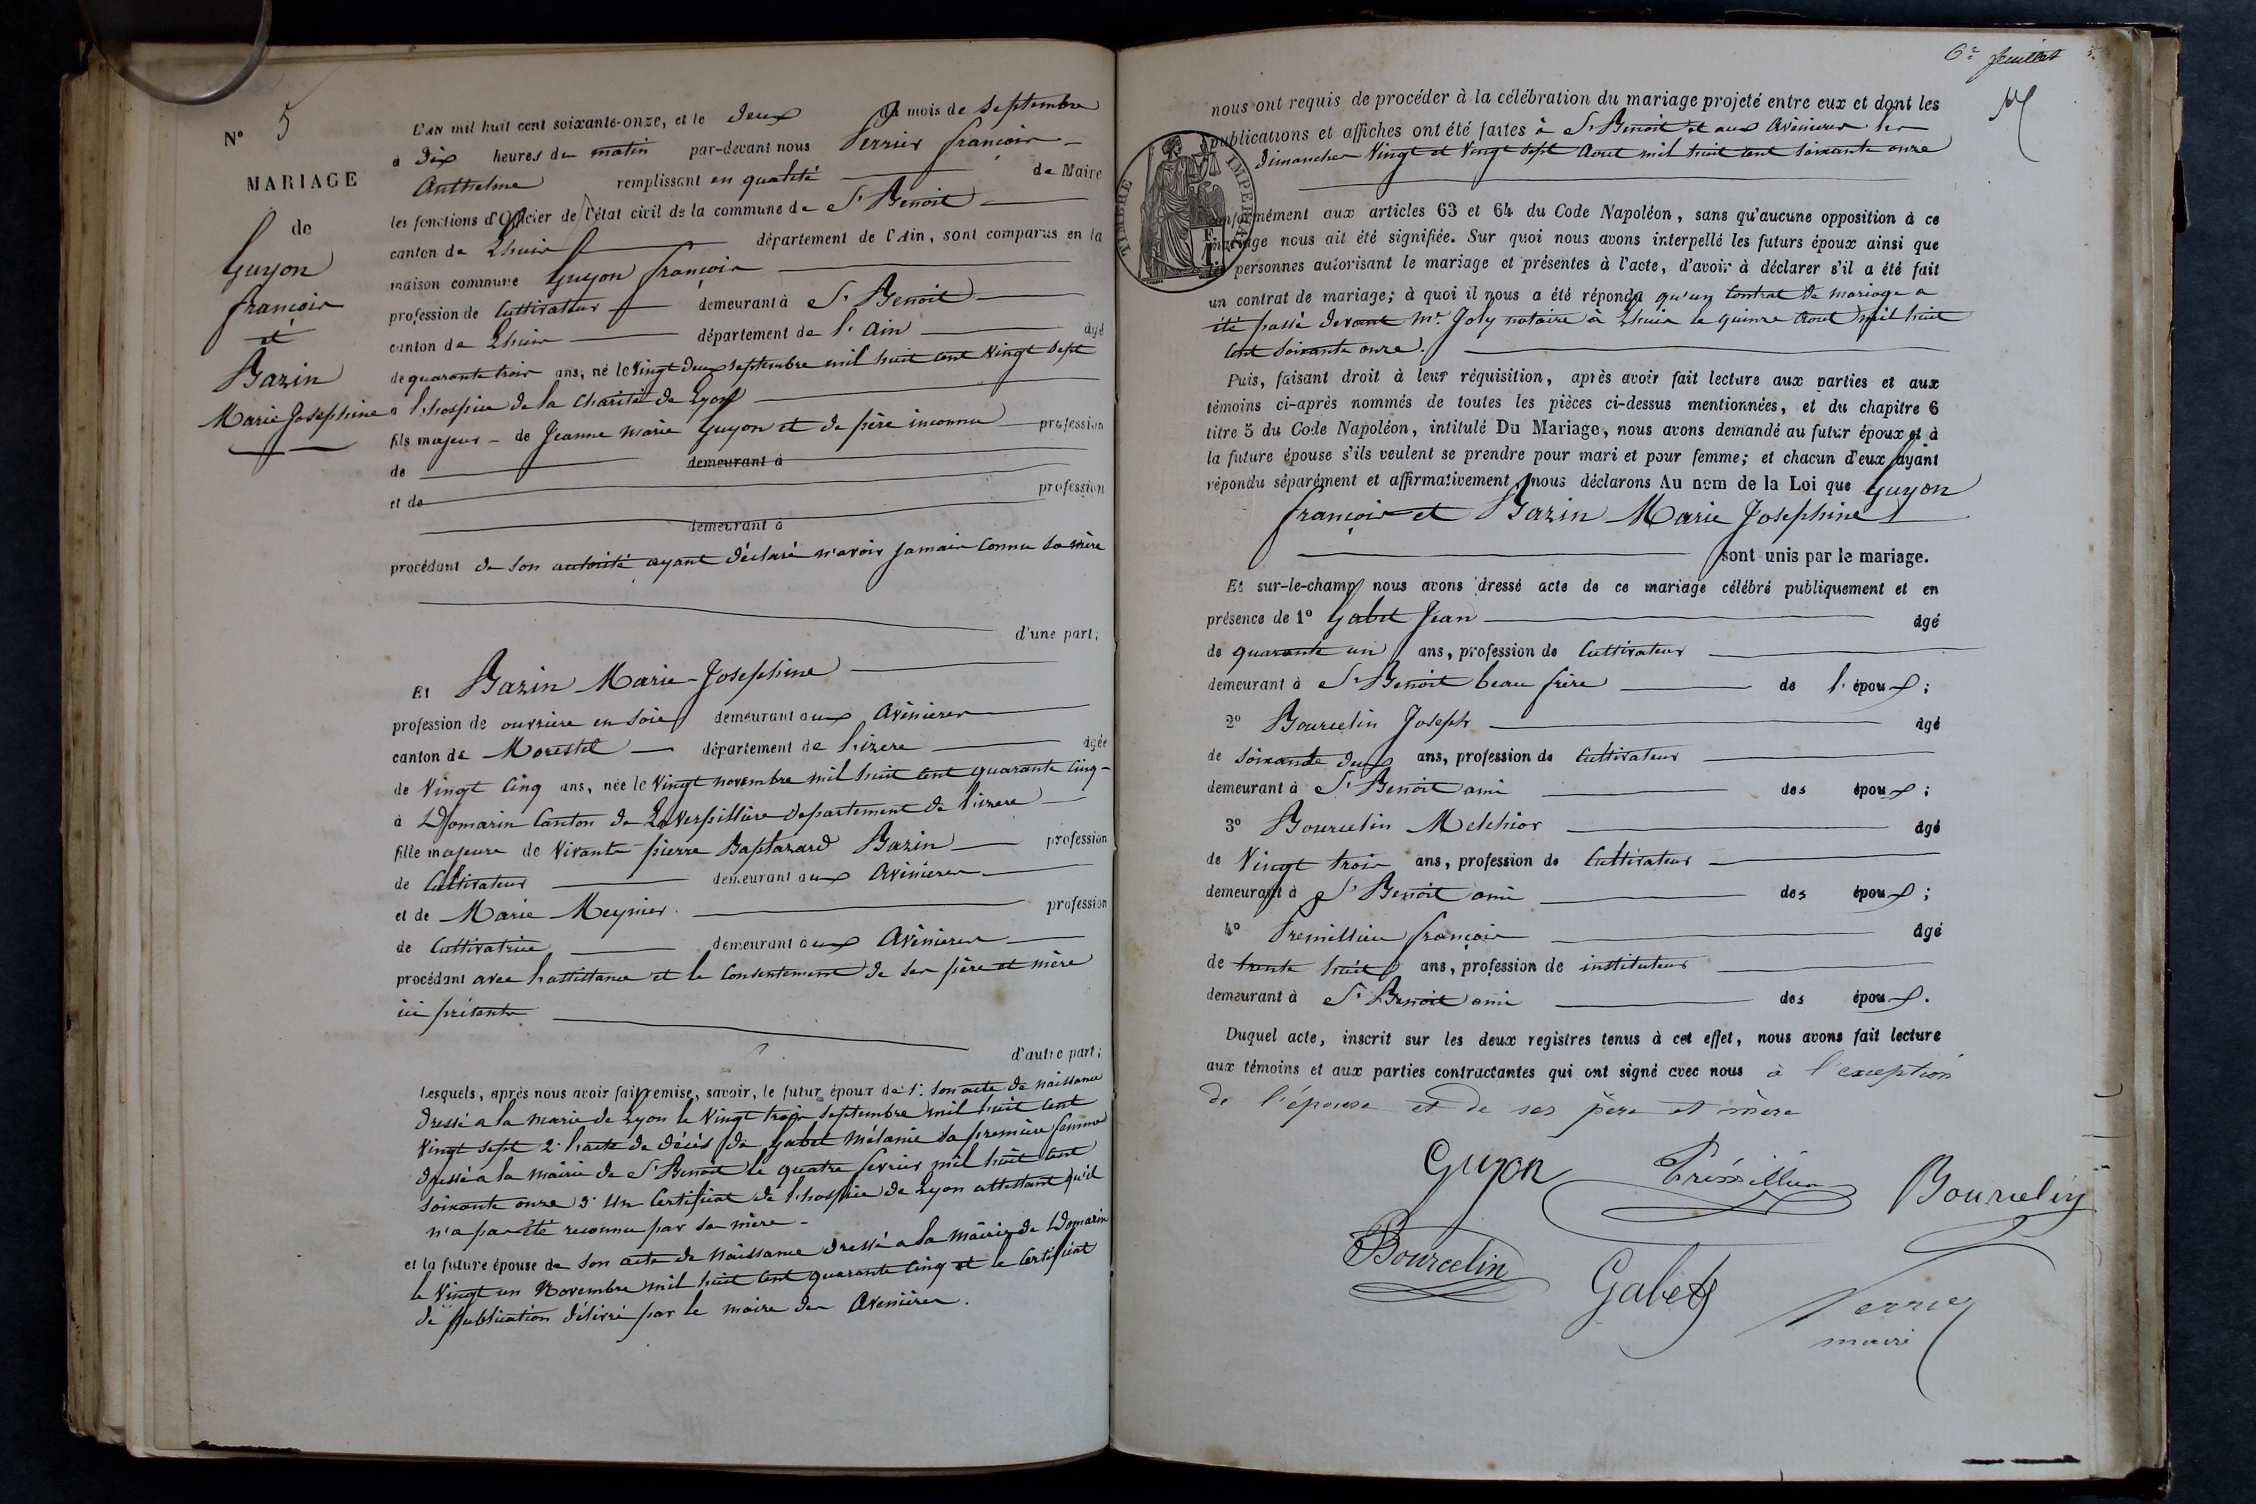 N° 5
MARIAGE
de
Guyon
françois
et
Bazin
Marie Josephine
L'an mil huit cent soixante-onze, et le deux du mois de septembre
à dix heures du matin par-devant nous Perrier françois
Anthelme remplissant en qualité de Maire
les fonctions d'Officier de l'état civil de la commune de St Benoit
canton de Lhuis département de l'Ain, sont comparus en la
maison commune Guyon françois
profession de Cultivateur demeurant à St Benoit
canton de Lhuis département de l'Ain âgé
de quarante trois ans, né le vingt deux septembre mil huit cent vingt sept
à l'hospice de la Charité de Lyon
fils majeur de Jeanne marie Guyon et de père inconnu profession
de demeurant à
et de profession
demeurant à
procédant de son autorité ayant déclaré n'avoir jamais connu sa mère
d'une part;
Et Bazin Marie-Josephine
profession de ouvrière en soie demeurant aux Avenieres
canton de Morestel département de l'izere âgée
de vingt cinq ans, née le vingt novembre mil huit cent quarante cinq
à Domarin Canton de Laverpillière departement de l'izere
fille majeure de vivants pierre Baptazard Bazin profession
de Cultivateur demeurant aux Avenieres
et de Marie Meynier profession
de Cultivatrice demeurant aux Avenieres
procédant avec l'assistance et le consentement de ses père et mère
ici présents
d'autre part;
Lesquels, après nous avoir fait remise, savoir, le futur époux de 1° son acte de naissance
dressé a la marie de Lyon le vingt trois septembre mil huit cent
vingt sept 2° l'acte de décès de Gabet Mélanie sa première femme
dressé a la mairie de St Benoit le quatre fevrier mil huit cent
soixante onze 3° un Certificat de l'hospice de Lyon attestant qu'il
n'a pas été reconnu par sa mère
et la future épouse de son acte de naissance dressé a la mairie de Domarin
le vingt un Novembre mil huit cent quarante cinq et le certificat
de publication délivré par le maire des Avenières.
6e feuillet
nous ont requis de procéder à la célébration du mariage projeté entre eux et dont les
publications et affiches ont été faites à St Benoit et aux Avenieres les
dimanches vingt et vingt sept Aout mil huit cent soixante onze
TIMBRE IMPERIAL
conformément aux articles 63 et 64 du Code Napoléon, sans qu'aucune opposition à ce
mariage nous ait été signifiée. Sur quoi nous avons interpellé les futurs époux ainsi que
les personnes autorisant le mariage et présentes à l'acte, d'avoir à déclarer s'il a été fait
un contrat de mariage; à quoi il nous a été répondu qu'un Contrat de mariage a
été passé devant Mr. Joly notaire à Lhuis le quinze Aout mil huit
cent soixante onze.
Puis, faisant droit à leur réquisition, après avoir fait lecture aux parties et aux
témoins ci-après nommés de toutes les pièces ci-dessus mentionnées, et du chapitre 6
titre 5 du Code Napoléon, intitulé Du Mariage, nous avons demandé au futur époux et à
la future épouse s'ils veulent se prendre pour mari et pour femme; et chacun d'eux ayant
répondu séparément et affirmativement, nous déclarons Au nom de la Loi que Guyon
françois et Bazin Marie Josephine
sont unis par le mariage.
Et sur-le-champ nous avons dressé acte de ce mariage célébré publiquement et en
présence de 1° Gabet Jean âgé
de quarante un ans, profession de Cultivateur
demeurant à St Benoit beau frère de l'époux;
2° Bourcelin Joseph âgé
de soixante deux ans, profession de Cultivateur
demeurant à St Benoit ami des époux;
3° Bourcelin Melchior âgé
de Vingt trois ans, profession de Cultivateur
demeurant à St Benoit ami des époux;
4° Premillieu françois âgé
de trente huit ans, profession de instituteur
demeurant à St Benoit ami des époux.
Duquel acte, inscrit sur les deux registres tenus à cet effet, nous avons fait lecture
aux témoins et aux parties contractantes qui ont signé avec nous à l'exception
de l'épouse et de ses père et mère
Guyon Prémillieu Bourcelin
Bourcelin Gabet Perrier
maire